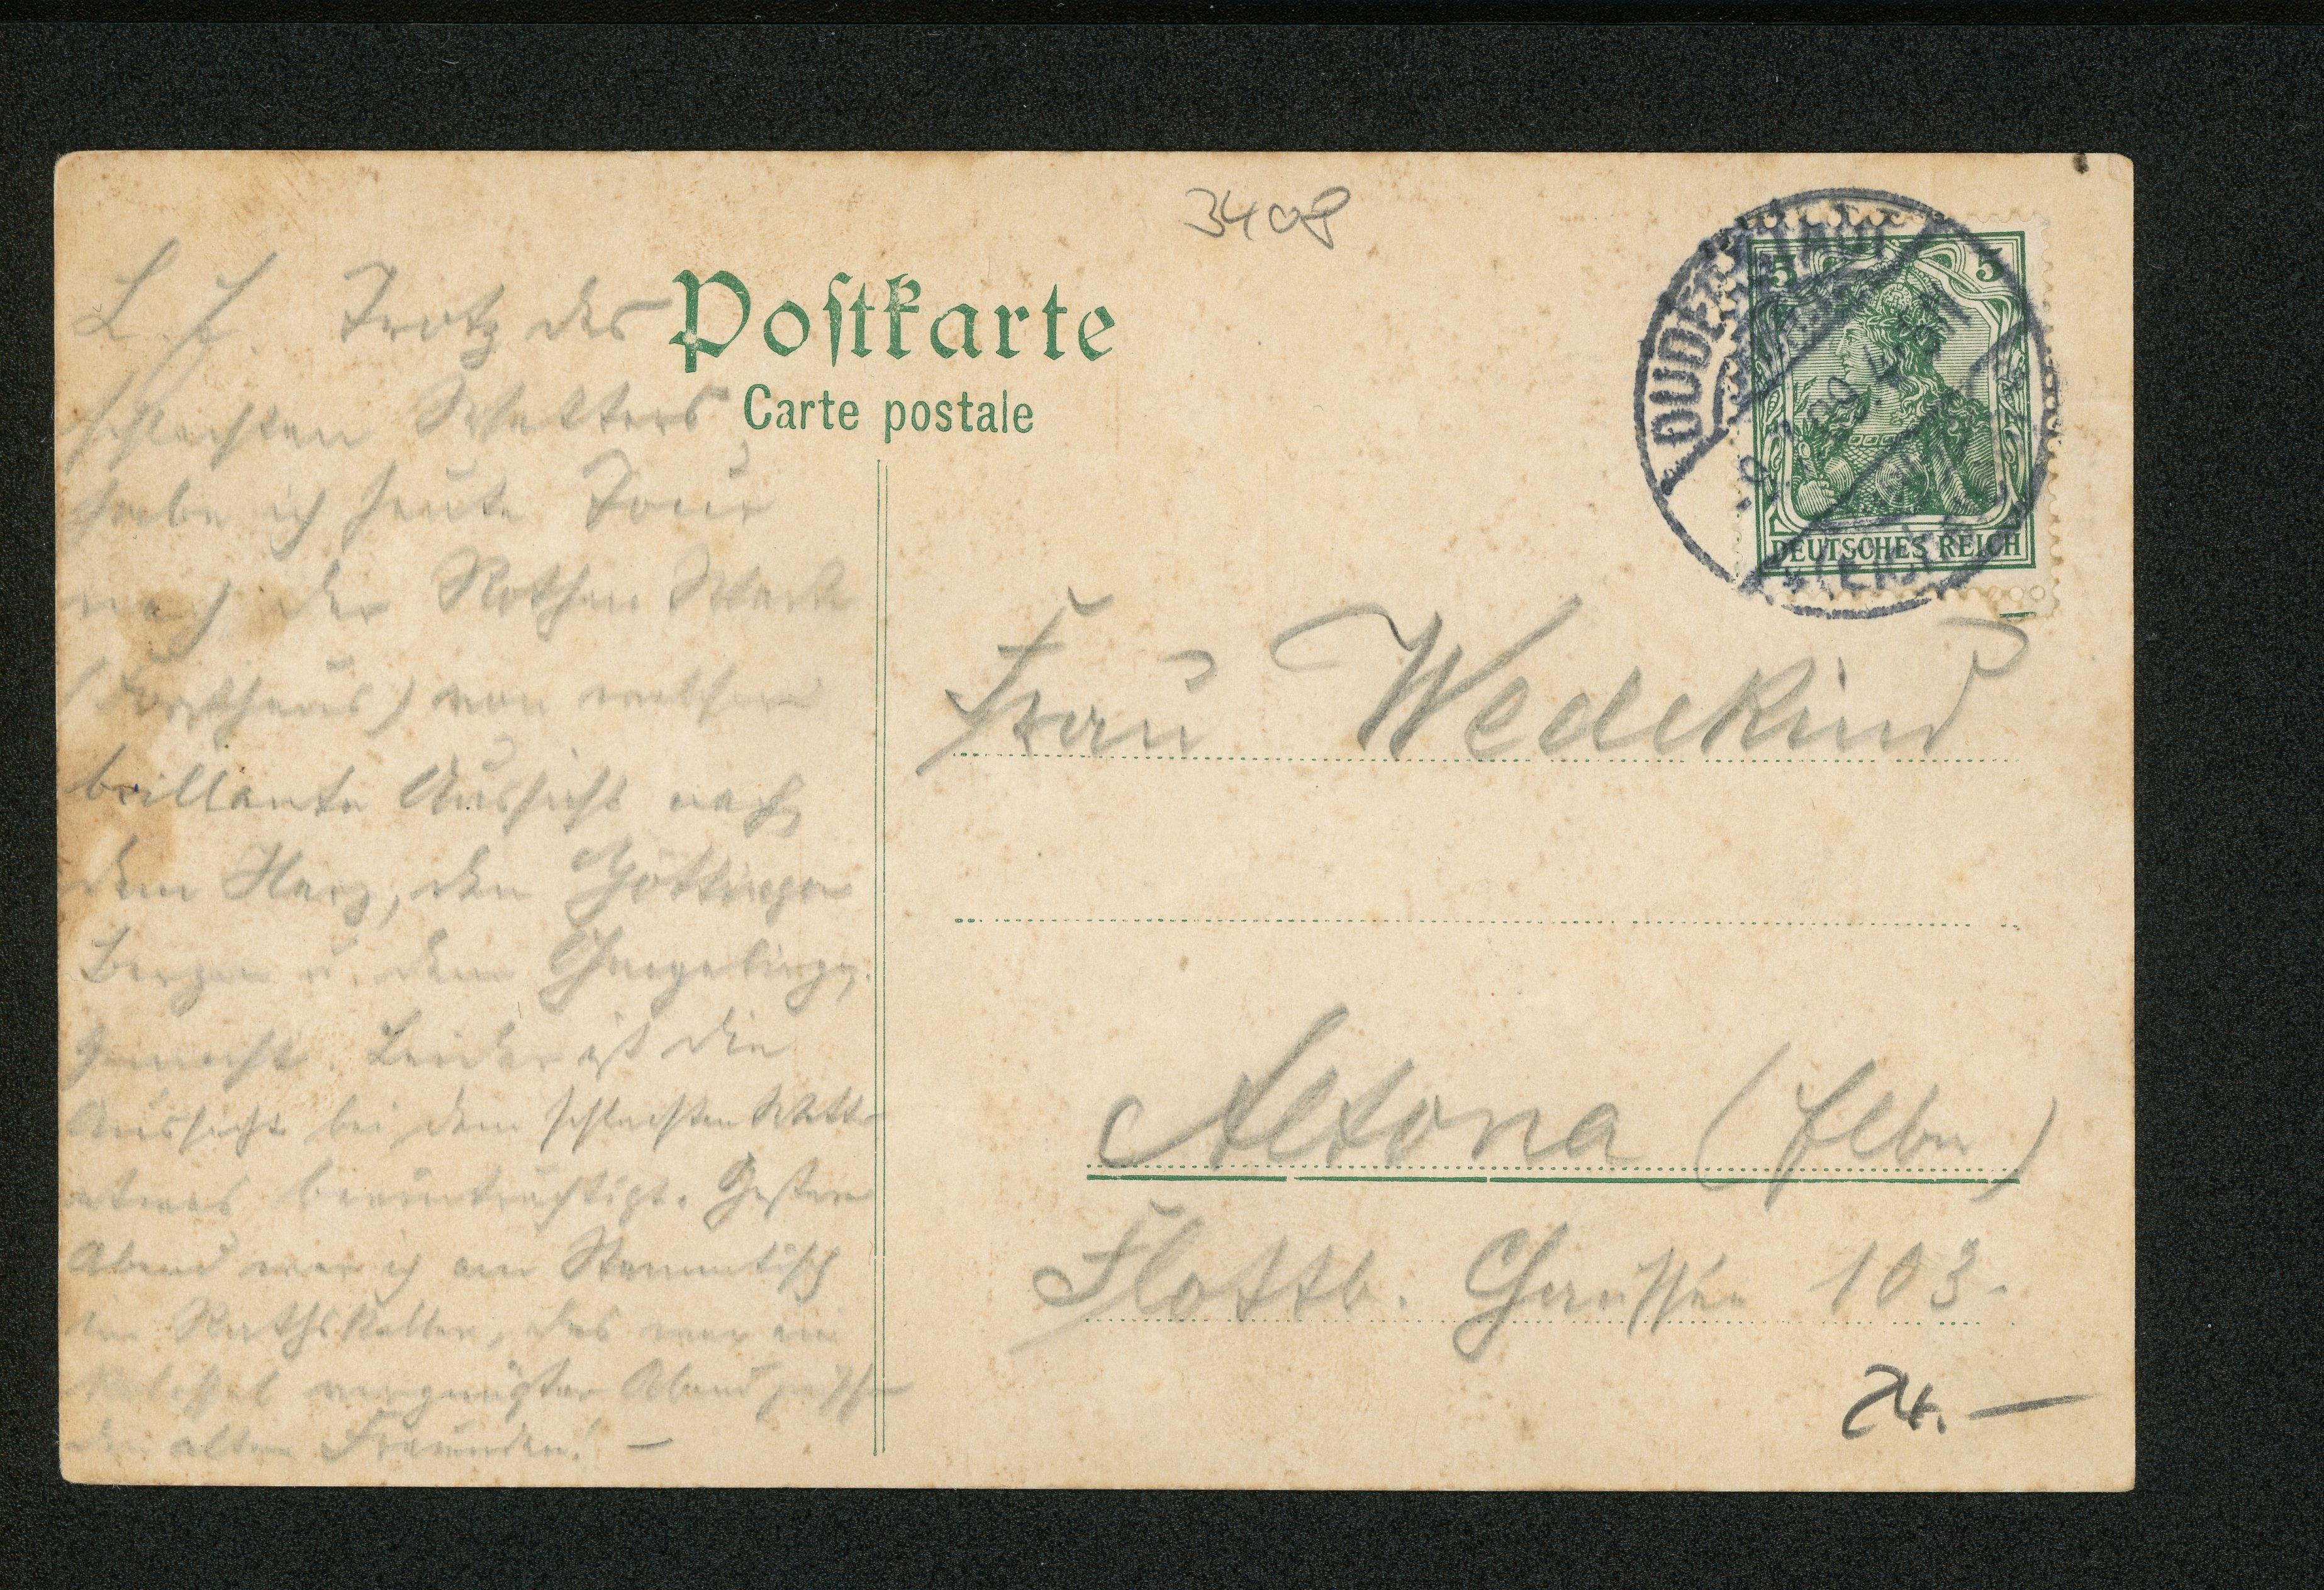 3408
Postkarte
Carte postale
5 5
DEUTSCHES REICH
DUDERSTADT
L. F. Trotz des
schlechten Wetters
habe ich heute Tour
nach der Rothen Warte
(Forsthaus) von welchem
brillante Aussicht nach
dem Harz, den Göttinger
Bergen u. dem
gemacht. Leider ist die
Aussicht bei dem schlechten Wetter
etwas beeinträchtigt. Gestern
Abend war ich am Stammtisch
im Rathskeller, das war ein
kolossal vergnügter Abend
den alten Freunden! —
Frau Wedekind
Altona (Elbe)
Flottb. Chaussée 103.
24.—